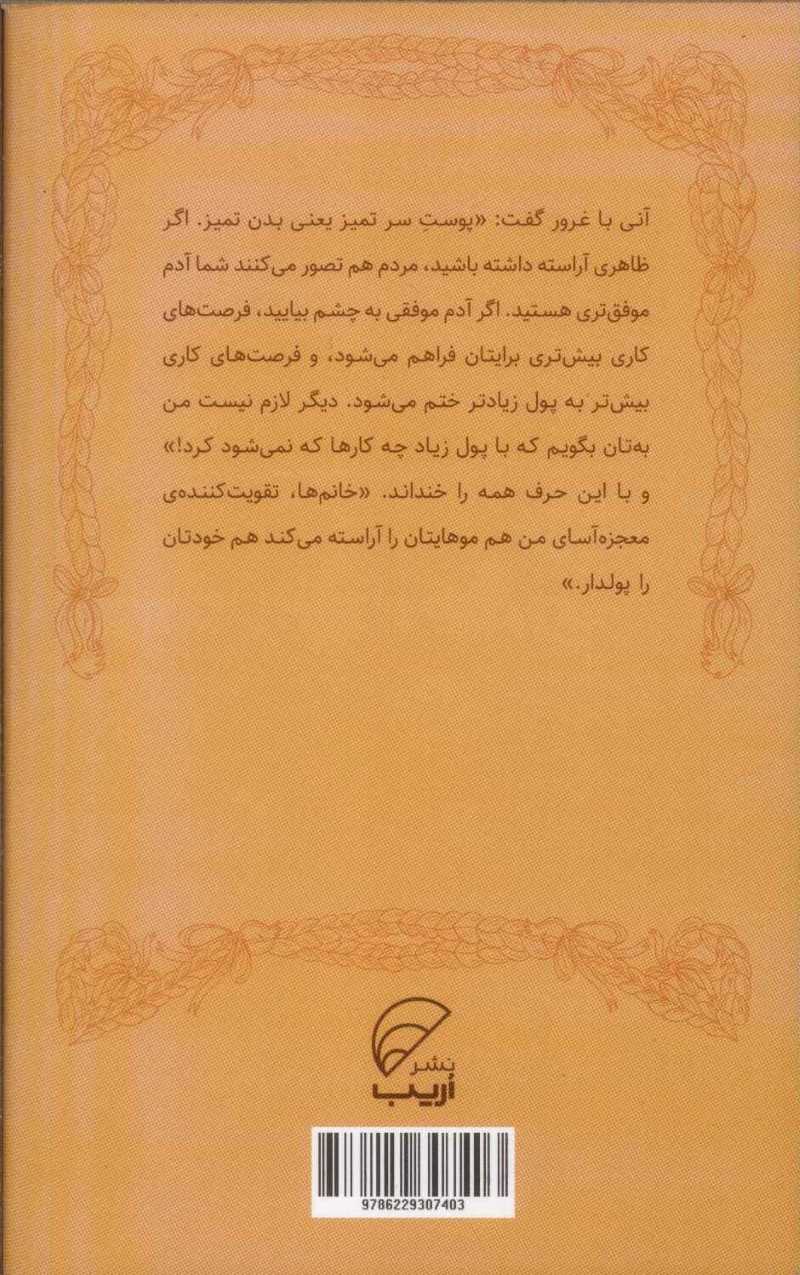 آنی با غرور گفت: «پوستِ سر تمیز یعنی بدن تمیز. اگر
ظاهری آراسته داشته باشید، مردم هم تصور می‌کنند شما آدم
موفق‌تری هستید. اگر آدم موفقی به چشم بیایید، فرصت‌های
کاری بیش‌تری برایتان فراهم می‌شود، و فرصت‌های کاری
بیش‌تر به پول زیادتر ختم می‌شود. دیگر لازم نیست من
به‌تان بگویم که با پول زیاد چه کارها که نمی‌شود کرد!»
و با این حرف همه را خنداند. «خانم‌ها، تقویت‌کننده‌ی
معجزه‌آسای من هم موهایتان را آراسته می‌کند هم خودتان
را پولدار.»
نشر
اُریب
9786229307403